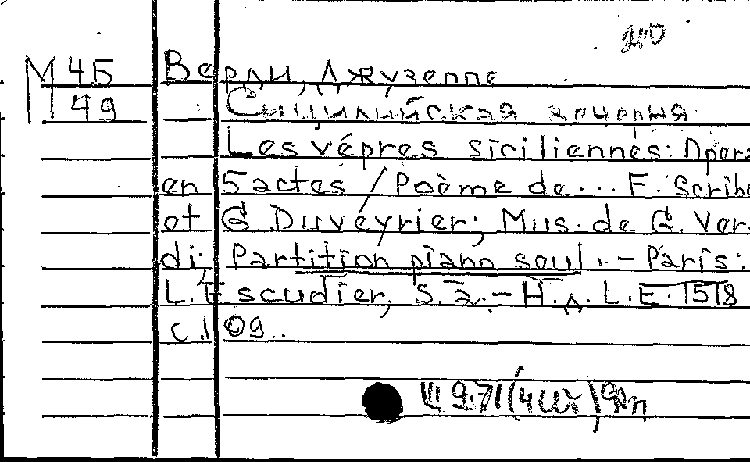 М 45 Верди, Джузеппе
М 49 Сицилийская вечерня
Les vépres siciliennes: Опера
en 5 actes / Poème de... F. Scribe
et G. Duveyrier; Mus. de G. Ver-
di; Partition piano soul. - Paris:
L. Escudier, S. a. - Н.д. L. E. 1518
с. 109.